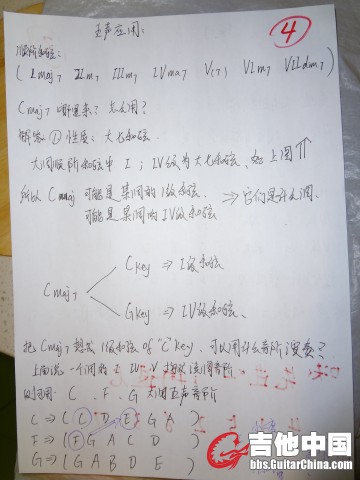 五声应用:
④
顺阶和弦:
( Imaj7 IIm7 IIIm7 IVma7 V(7) VIm7 VIIdim7 )
Cmaj7 哪里来? 怎么用?
解答 ① 性质: 大七和弦.
大调顺阶和弦中 I; IV级为大七和弦. 如上图 ⇑
所以 Cmaj 可能是某调的I级和弦. ⇒ 它们是什么调.
可能是某调的IV级和弦
Cmaj7
Ckey ⇒ I级和弦.
Gkey ⇒ IV级和弦.
把 Cmaj7 想成 I级和弦 of "C" key, 可以用什么音阶演奏?
上面说一个调的 I IV V 级 该调音阶
可用: C . F . G 大调五声音阶
C ⇒ ( C D E G A )
F ⇒ ( F G A C D )
G ⇒ ( G A B D E )
吉他中国
bbs.GuitarChina.com